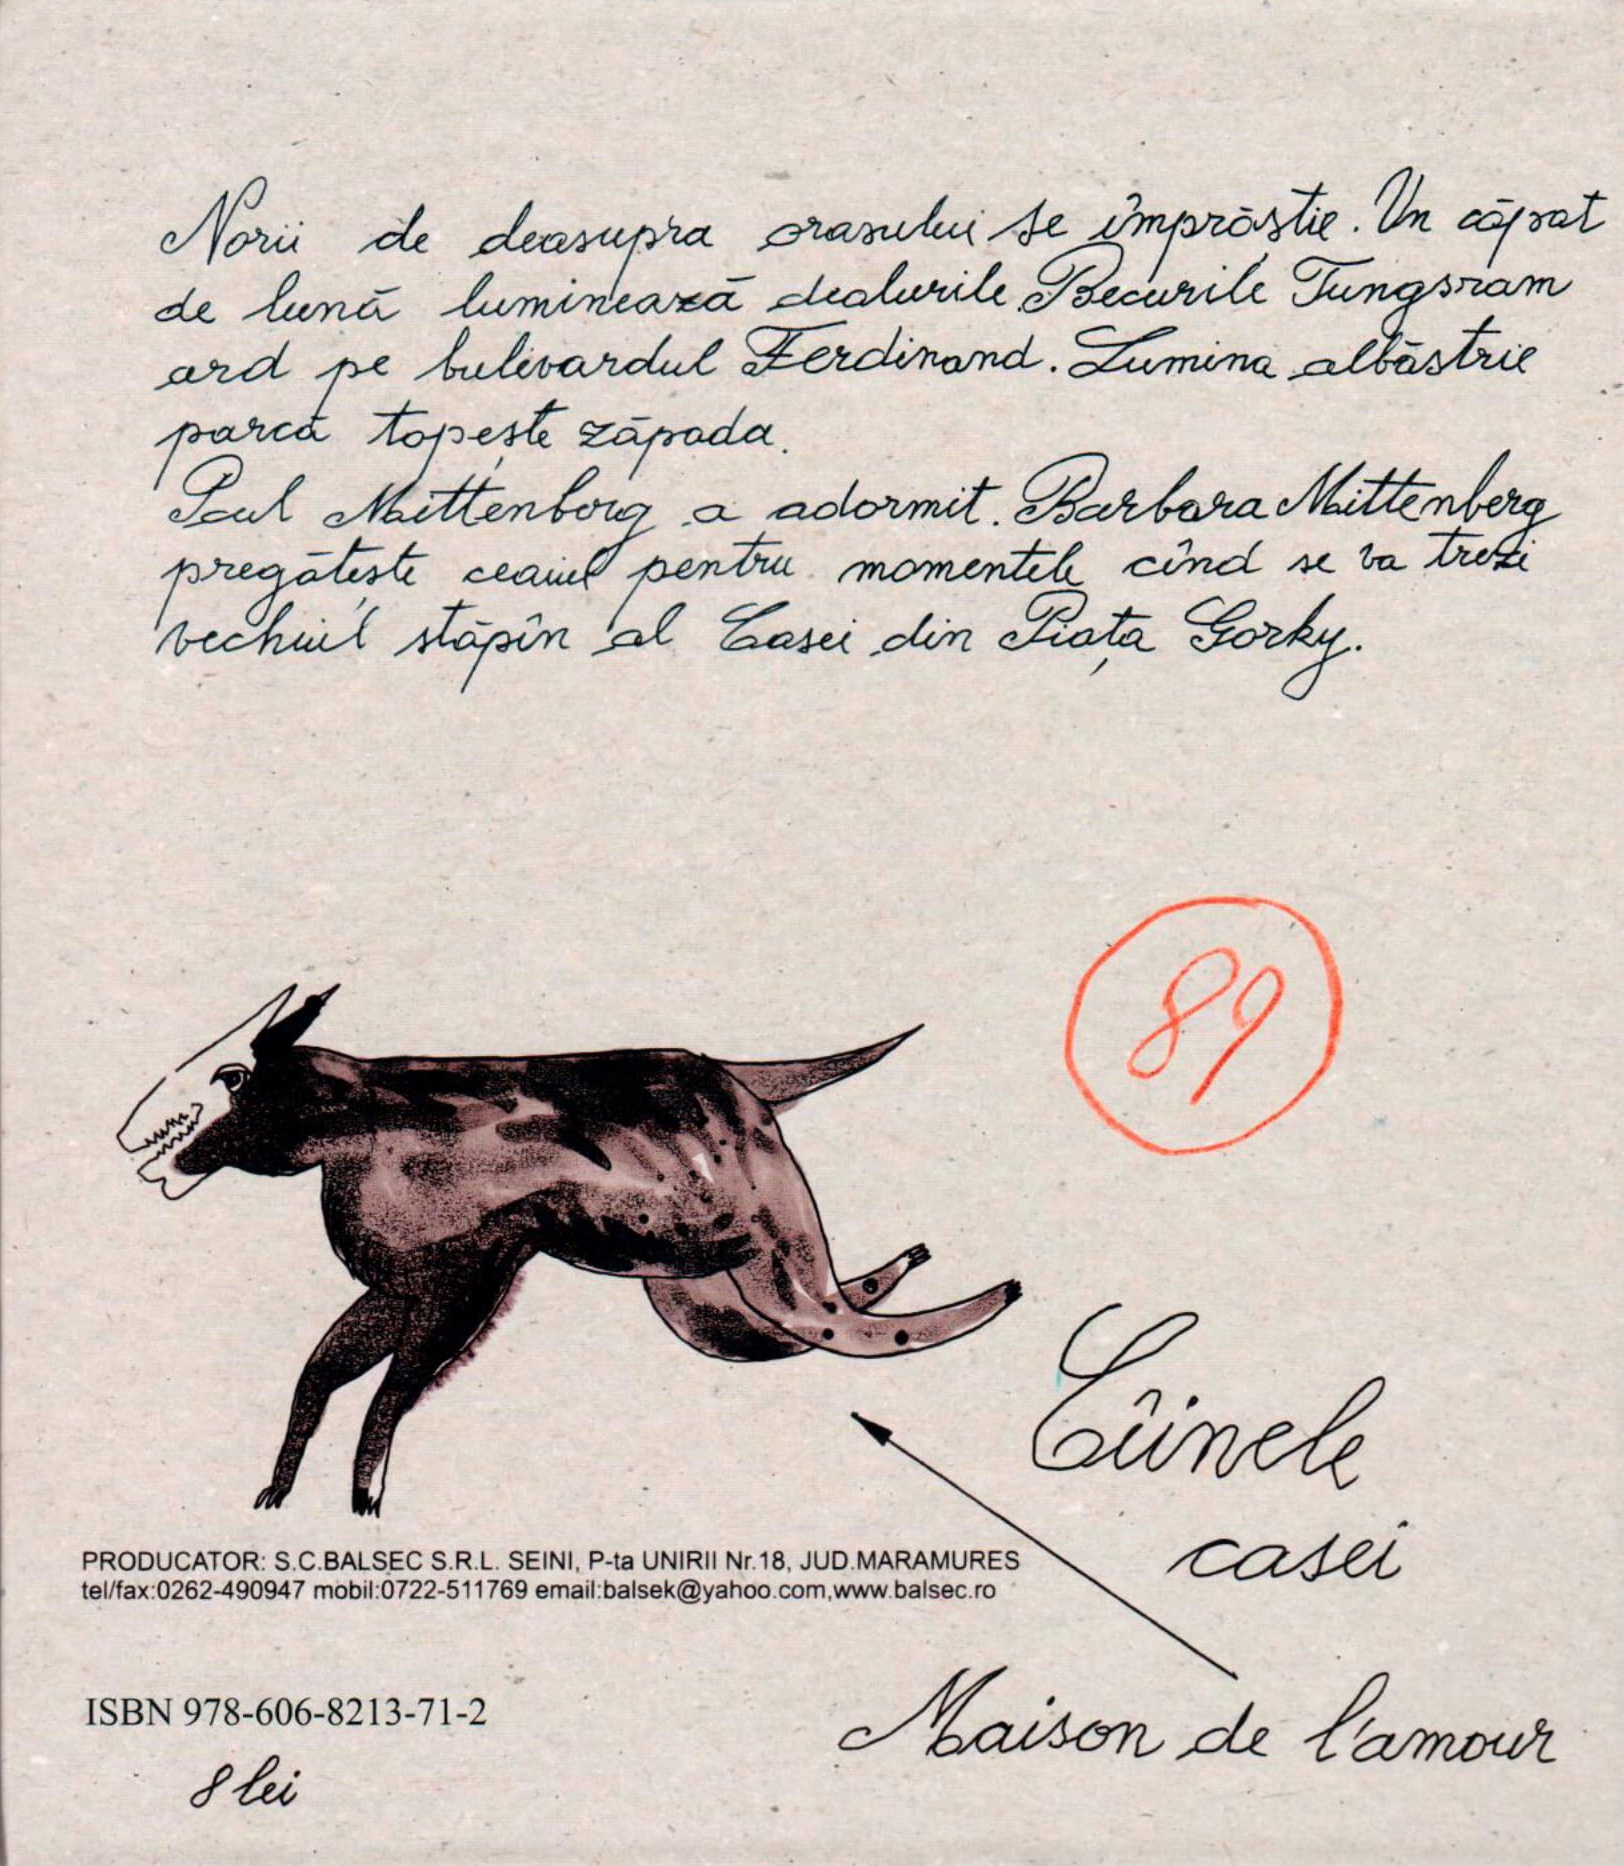 Norii de deasupra orasului se împrăștie. Un căpat
de lună luminează dealurile. Becurile Tungsram
ard pe bulivardul Ferdinand. Lumina albăstrie
parcă topește zăpada.
Paul Mittenberg a adormit. Barbara Mittenberg
pregătește ceaiul pentru momentele cînd se va trezi
vechiul stăpîn al Casei din Piața Gorky.
89
Cîinele
casei
PRODUCATOR: S.C.BALSEC S.R.L. SEINI, P-ta UNIRII Nr.18, JUD.MARAMURES
tel/fax:0262-490947 mobil:0722-511769 email:balsek@yahoo.com,www.balsec.ro
Maison de l'amour
ISBN 978-606-8213-71-2
8 lei